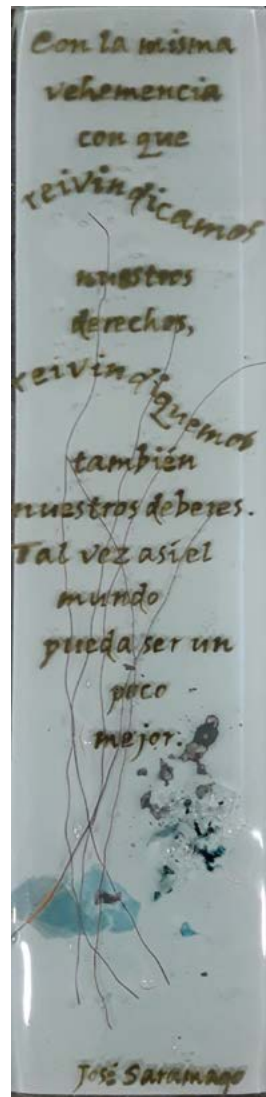 Con la misma
vehemencia
con que
reivindicamos
nuestros
derechos,
reivindiquemos
también
nuestros deberes.
Tal vez así el
mundo
pueda ser un
poco
mejor.
José Saramago